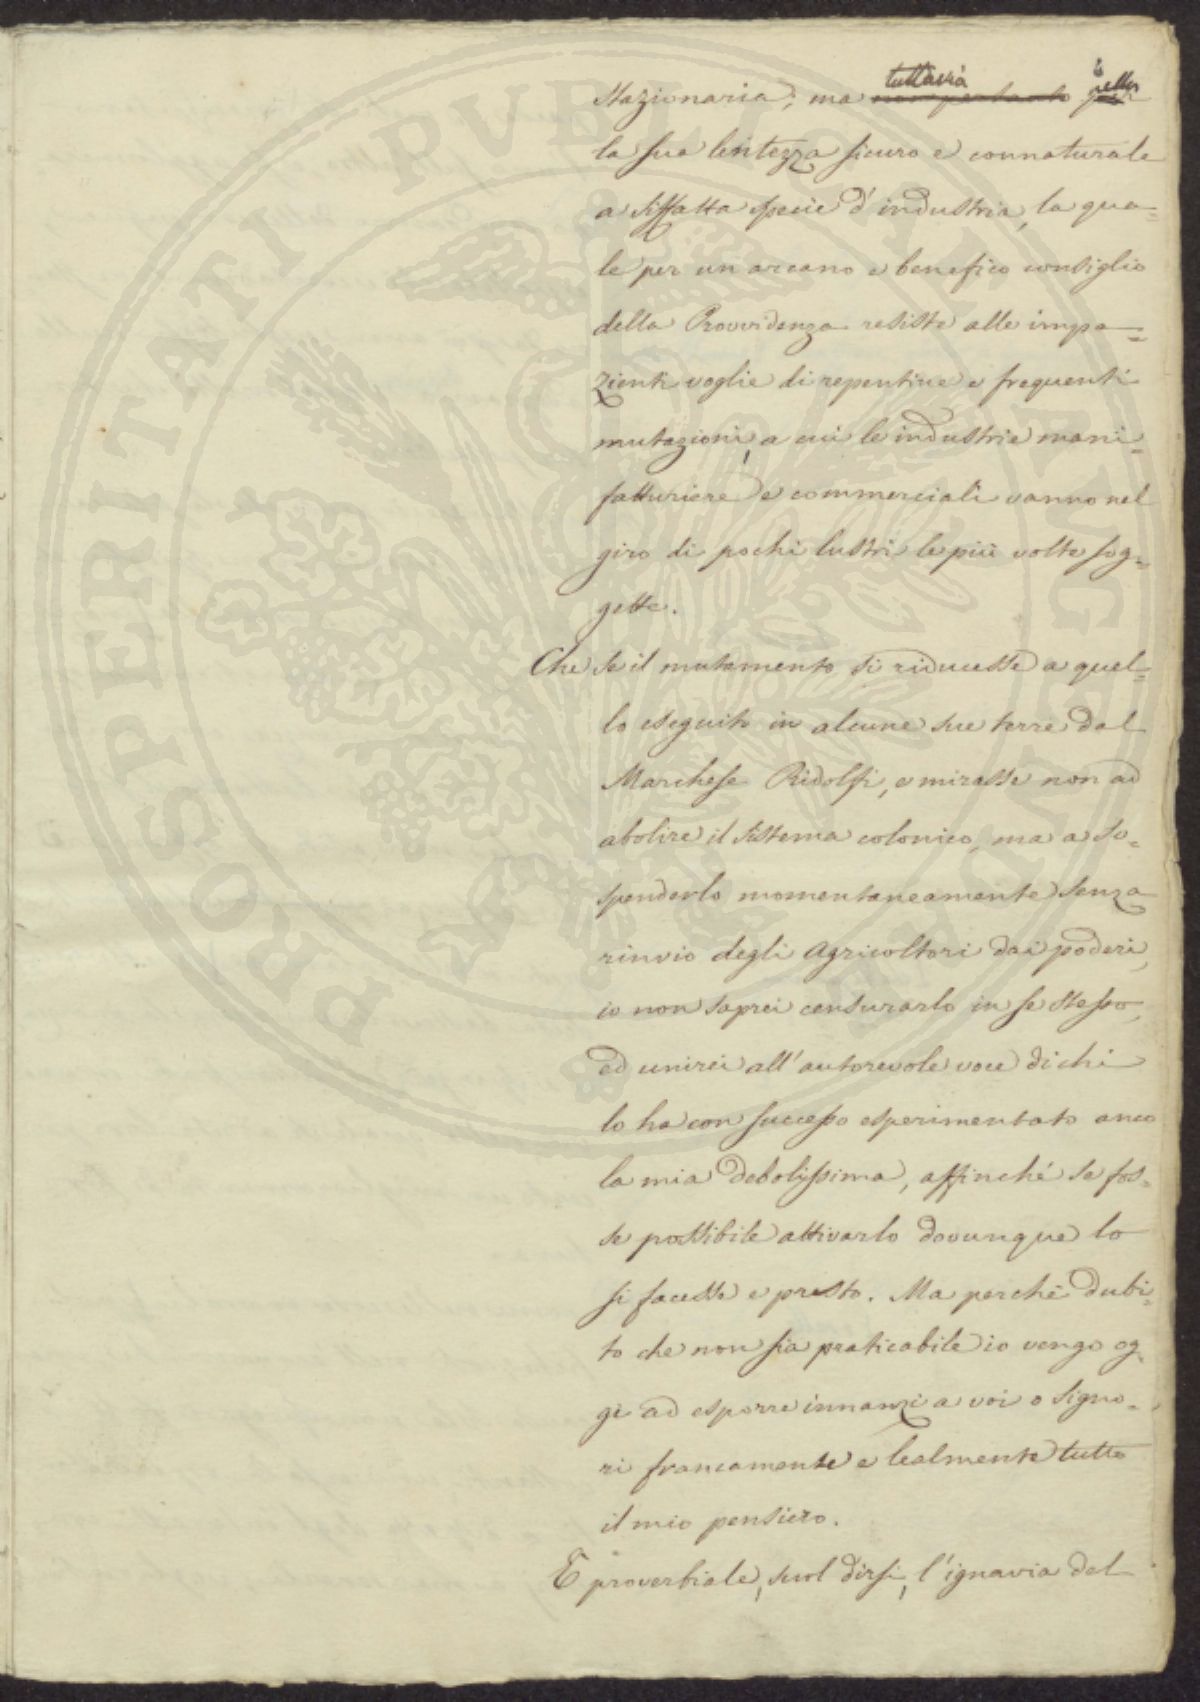 stazionaria; ma tuttavia nella
la sua lentezza sicuro e connaturale
a siffatta specie d'industria, la qua=
le per un arcano e benefico consiglio
della Provvidenza resiste alle impa=
zienti voglie di repentine e frequenti
mutazioni, a cui le industrie mani=
fatturiere e commerciali vanno nel
giro di pochi lustri le più volte sog=
gette.
Che se il mutamento si riducesse a quel=
lo eseguito in alcune sue terre dal
Marchese Ridolfi, e mirasse non ad
abolire il sistema colonico, ma a so=
spenderlo momentaneamente senza
rinvio degli Agricoltori dai poderi,
io non saprei censurarlo in se stesso,
ed unirei all'autorevole voce di chi
lo ha con successo esperimentato anco
la mia debolissima, affinché se fos=
se possibile attivarlo dovunque lo
si facesse e presto. Ma perchè dubi=
to che non sia praticabile io vengo og=
gi ad esporre innanzi a voi o Signo=
ri francamente e lealmente tutto
il mio pensiero.
E proverbiale, suol dirsi, l'ignavia del
PROSPERITATI PUBLICAE